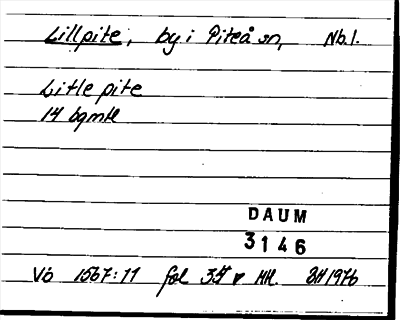 Lillpite, by i Piteå sn, Nb.l.
Litle pite
14 bgmtl
DAUM
3146
Vö 1567:11 fol 35 v HH. 1976